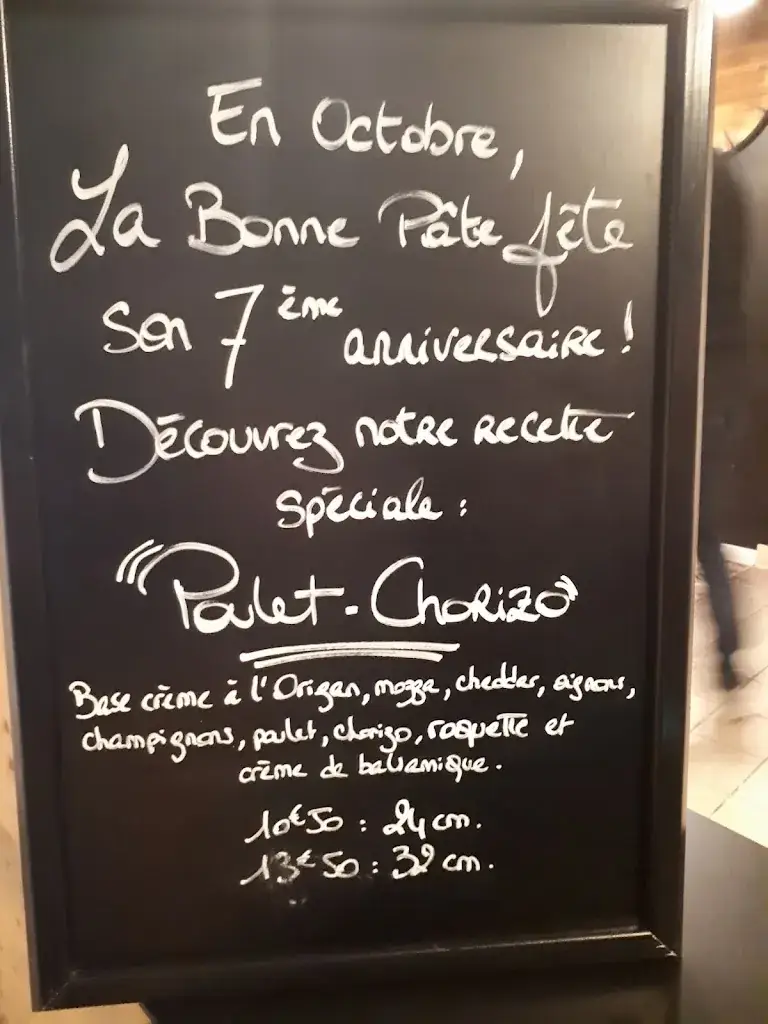 En Octobre,
La Bonne Pâte fête
son 7ème anniversaire !
Découvrez notre recette
spéciale :
"Poulet - Chorizo"
Base crème à l'Origan, mozza, cheddar, oignons,
champignons, poulet, chorizo, roquette et
crème de balsamique.
10€50 : 24 cm.
13€50 : 32 cm.